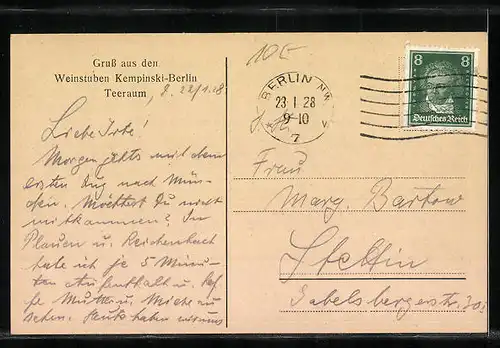 Gruß aus den
Weinstuben Kempinski-Berlin
Teeraum, 22/1.28
10 E
Morgen gehts mit dem
ersten Zug nach Mün-
chen. Möchtest Du nicht
mitkommen? In
Plauen u. Reichenbach
habe ich je 5 Minu-
ten Aufenthalt u.
Mutter u. zu
sehen. Heute haben wir uns
BERLIN NW
23 1 28
9-10
V
* 7
8 8
Deutsches Reich
Frau
Marg. Bartow
Stettin
Gabelsbergerstr.